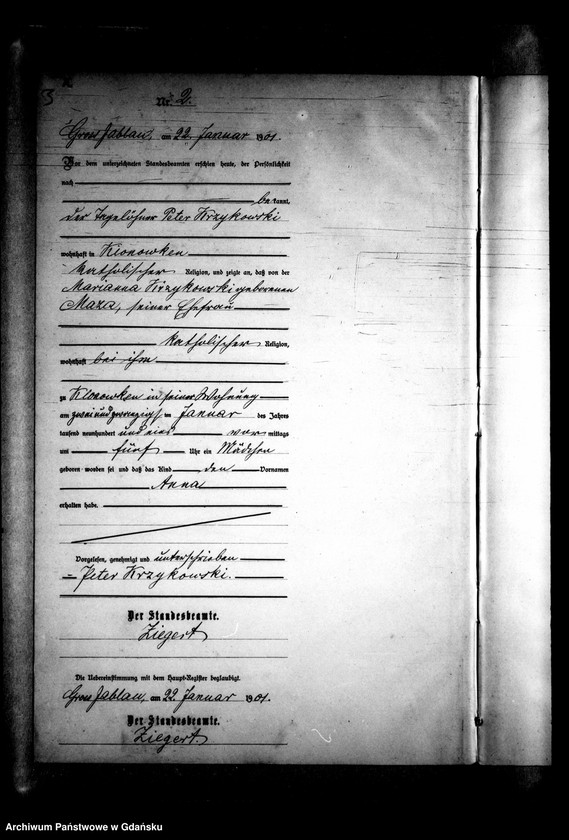 Nr. 2.
Gross Jablau, am 22. Januar 1901.
Vor dem unterzeichneten Standesbeamten erschien heute, der Persönlichkeit
nach
bekannt,
der Tagelöhner Peter Krzykowski
wohnhaft in Klonowken
katholischer Religion, und zeigte an, daß von der
Marianna Krzykowski geborenen
Maza, seiner Ehefrau
katholischer Religion,
wohnhaft bei ihm
zu Klonowken in seiner Wohnung
am zweiundzwanzigsten Januar des Jahres
tausend neunhundert und eins vormittags
um fünf Uhr ein Mädchen
geboren worden sei und daß das Kind den Vornamen
Anna
erhalten habe.
Vorgelesen, genehmigt und unterschrieben
Peter Krzykowski.
Der Standesbeamte.
Ziegert
Die Uebereinstimmung mit dem Haupt-Register beglaubigt.
Gross Jablau, am 22. Januar 1901.
Der Standesbeamte.
Ziegert.
Archiwum Państwowe w Gdańsku